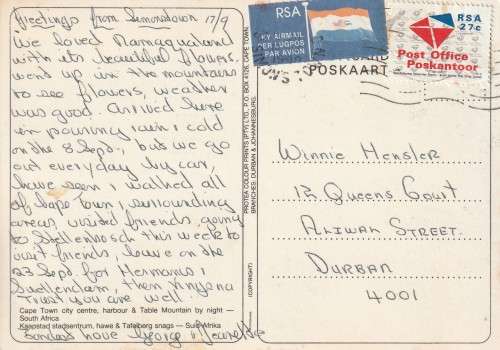 Greetings from Simonstown 17/9
We loved Namaqualand
with its beautiful flowers.
went up in the mountains
to see flowers, weather
was good. Arrived here
in pouring rain & cold
on the 8 Sept., but we go
out everyday by car,
have seen & walked all
of Cape Town & surrounding
areas, visited friends, going
to Stellenbosch this week to
visit friends, leave on the
23 Sept for Hermanus &
Swellendam, then
Trust you are well.
Cape Town city centre, harbour & Table Mountain by night —
South Africa
Kaapstad stadsentrum, hawe & Tafelberg snags — Suid-Afrika
love George &
PROTEA COLOUR PRINTS (PTY) LTD. P.O. BOX 4126, CAPE TOWN.
BRANCHES: DURBAN & JOHANNESBURG.
(COPYRIGHT)
RSA
PER LUGPOS
PAR AVION
RSA
27c
Post Office
Poskantoor
POSKAART
Winnie Hensler
12 Queens Court
Aliwal Street.
Durban
4001